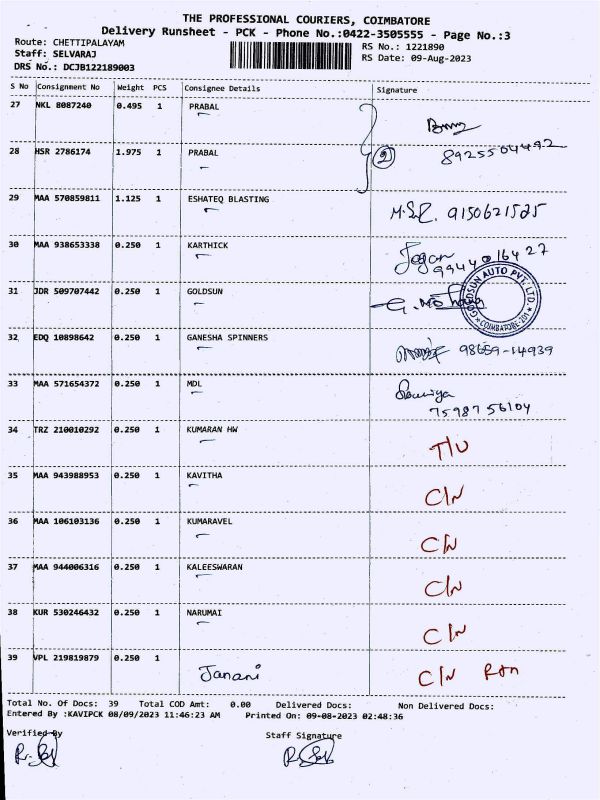 THE PROFESSIONAL COURIERS, COIMBATORE
Delivery Runsheet - PCK - Phone No.:0422-3505555 - Page No.:3
Route: CHETTIPALAYAM RS No.: 1221890
Staff: SELVARAJ RS Date: 09-Aug-2023
DRS No.: DCJB122189003
S No Consignment No Weight PCS Consignee Details Signature
27 NKL 8087240 0.495 1 PRABAL
28 HSR 2786174 1.975 1 PRABAL 2 8925504492
29 MAA 570859811 1.125 1 ESHATEQ BLASTING M.S.R. 9150621525
30 MAA 938653338 0.250 1 KARTHICK Jagan 9944016427
31 JDR 509707442 0.250 1 GOLDSUN G. Mohana
GOLDSUN AUTO PVT. LTD. COIMBATORE-201
32 EDQ 10898642 0.250 1 GANESHA SPINNERS 98659-14939
33 MAA 571654372 0.250 1 MDL Sowmiya
7598756104
34 TRZ 210010292 0.250 1 KUMARAN HW T/U
35 MAA 943988953 0.250 1 KAVITHA C/N
36 MAA 106103136 0.250 1 KUMARAVEL C/N
37 MAA 944006316 0.250 1 KALEESWARAN C/N
38 KUR 530246432 0.250 1 NARUMAI C/N
39 VPL 219819879 0.250 1 Janani C/N
Total No. Of Docs: 39 Total COD Amt: 0.00 Delivered Docs: Non Delivered Docs:
Entered By :KAVIPCK 08/09/2023 11:46:23 AM Printed On: 09-08-2023 02:48:36
Verified By Staff Signature